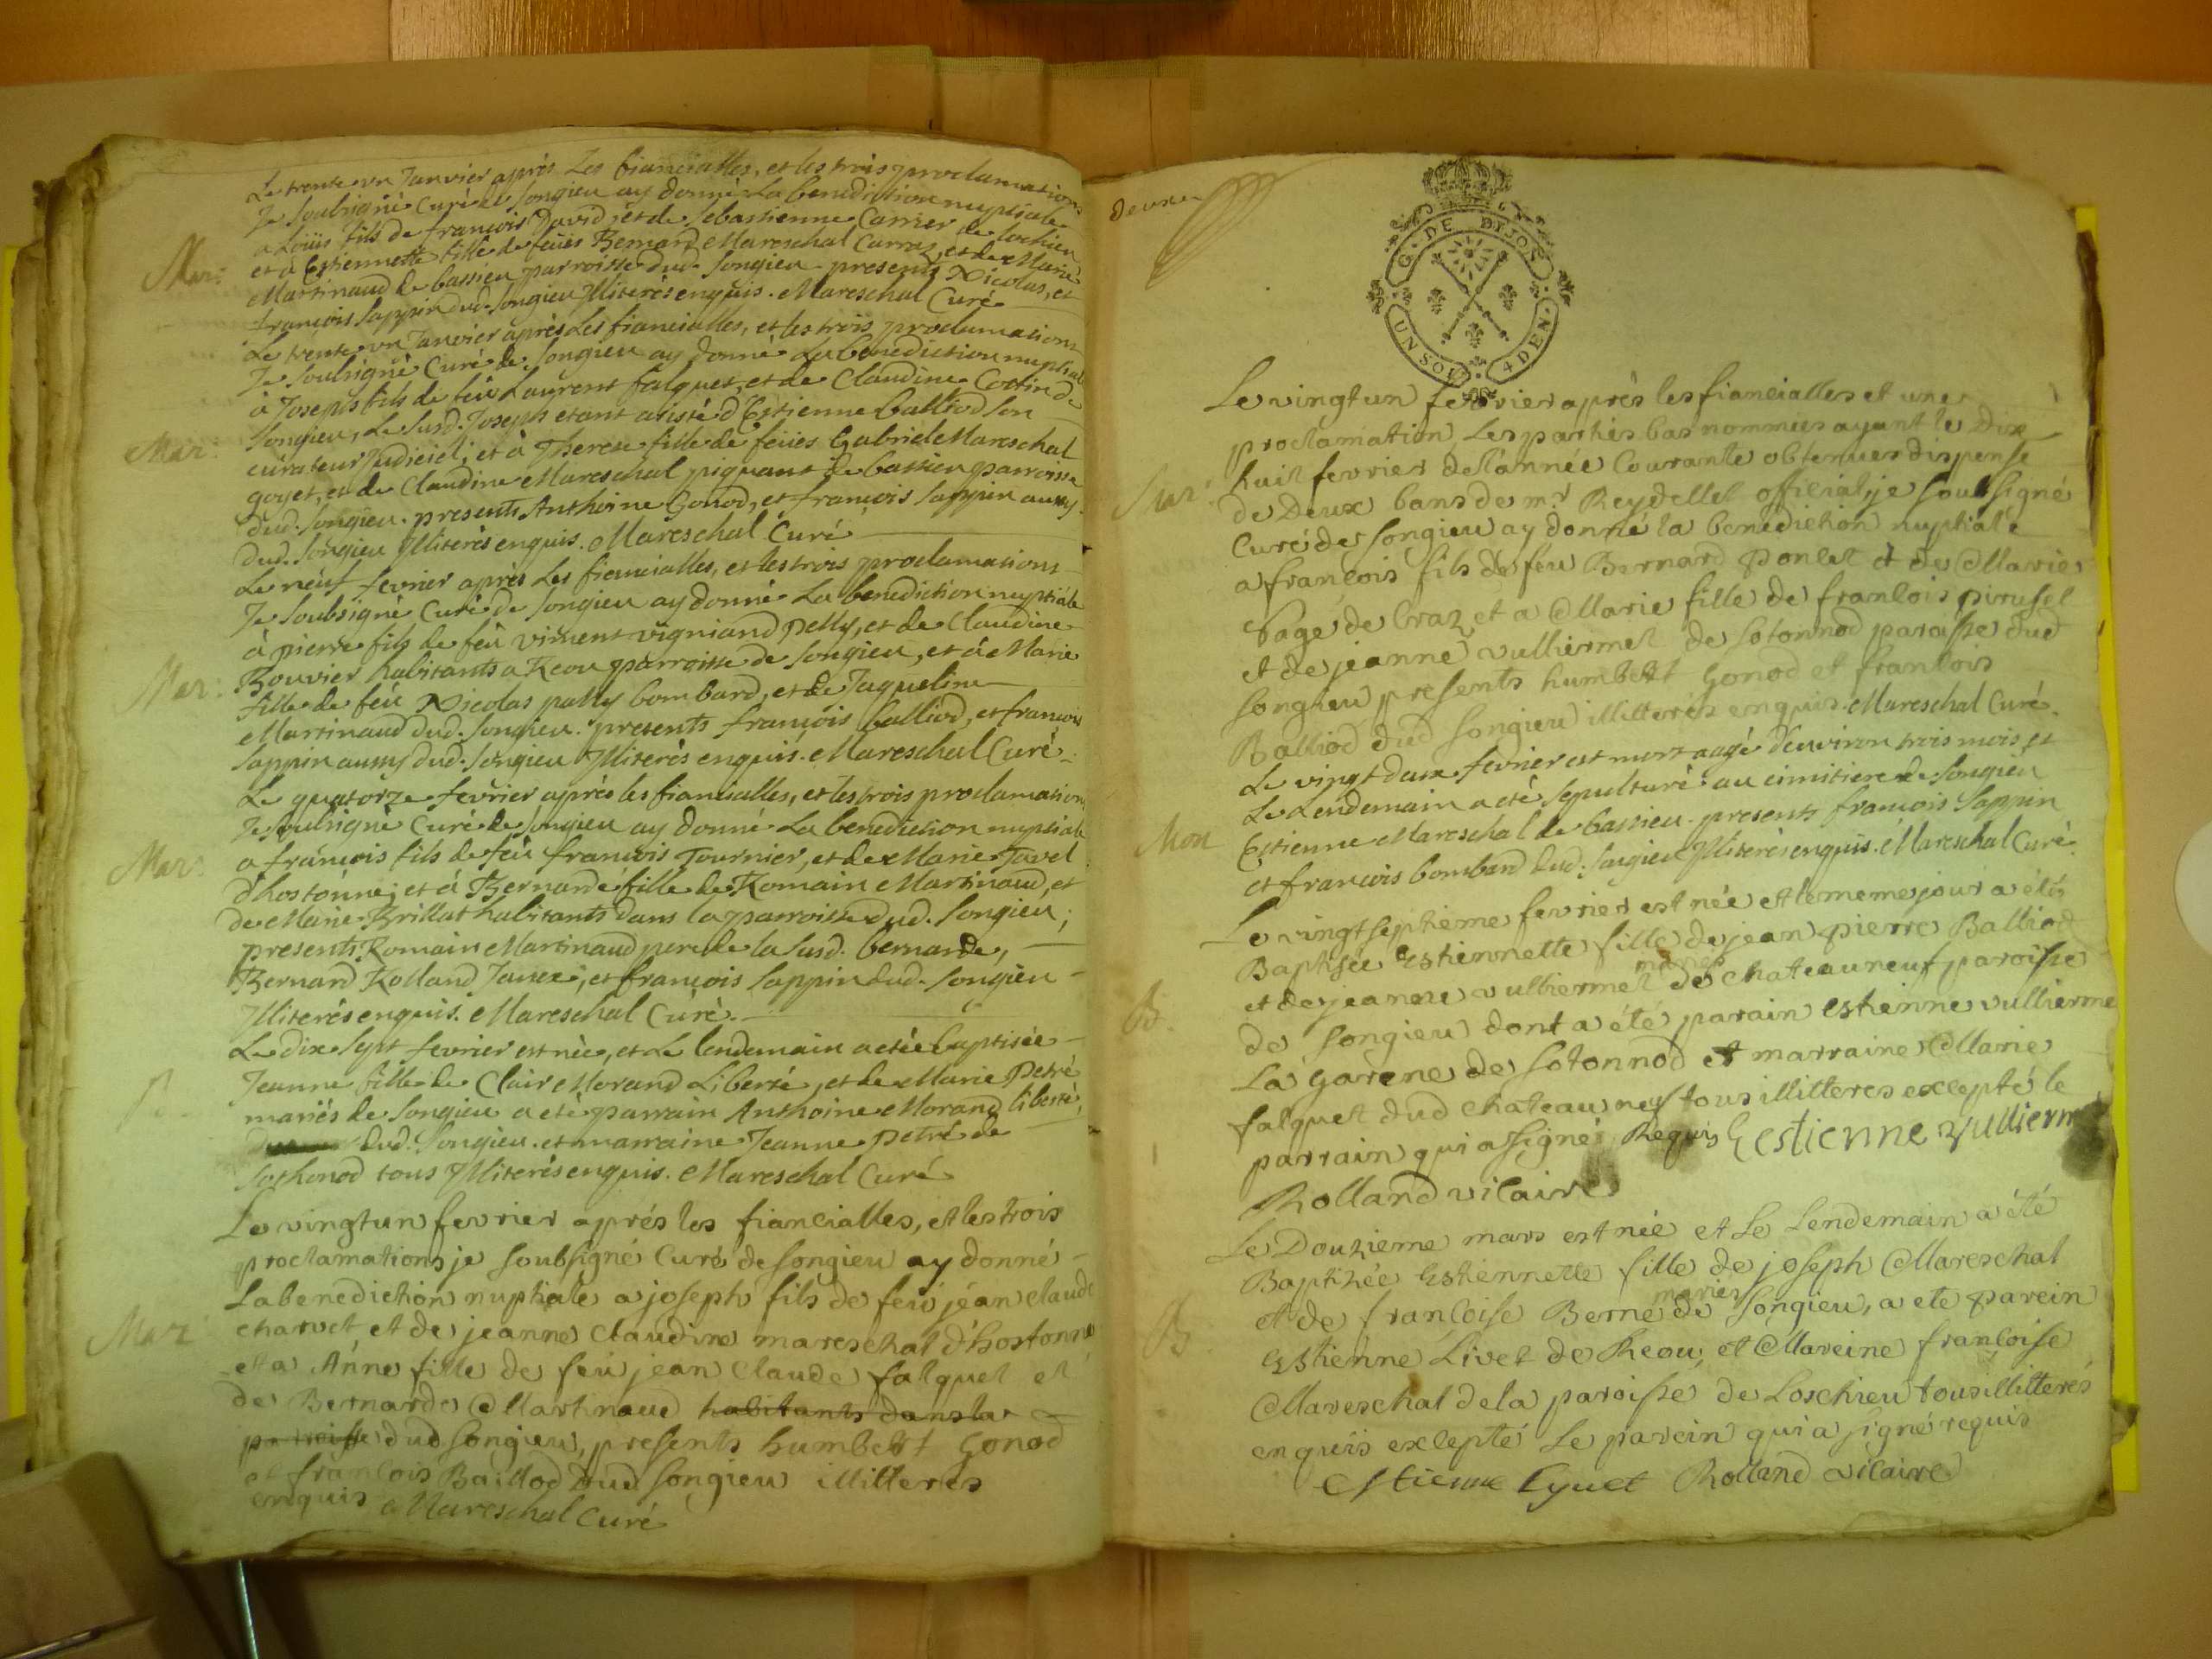 Le trente un Janvier après Les fiancialles, et les trois proclamations
Je soubsigné Curé de Songieu ay donné La benediction nuptiale
a Loüis fils de françois David, et de Sebastienne Carrier de lochieu
et à Estiennette fille de feües Bernard Mareschal Carraz, et de Marie
Mar:
Martinaud de bassieu parroisse dud. Songieu. presents Nicolas, et
françois Sappin dud. Songieu Illiterés enquis. Mareschal Curé
Le trente un Janvier après Les fiancialles, et les trois proclamations
Je soubsigné Curé de Songieu ay donné La benediction nuptiale
à Joseph fils de feu Laurent falquet, et de Claudine Cottin de
Songieu, Le susd. Joseph etant asisté d'Estienne balliod son
Mar:
curateur Judiciel; et à Therese fille de feües Gabriel Mareschal
goyet, et de Claudine Mareschal piquant de bassieu parroisse
dud. Songieu. presents Anthoine Gonod, et françois Sappin aussy
dud. Songieu Illiterés enquis. Mareschal Curé
Le neuf fevrier après Les fiancialles, et les trois proclamations
Je soubsigné Curé de Songieu ay donné La benediction nuptiale
à pierre fils de feu vincent vigniand pelly, et de Claudine
Mar:
Bouvier habitants a Reou parroisse de Songieu, et à Marie
fille de feu Nicolas bombard, et de Jaqueline
Martinaud dud. Songieu. presents françois balliod, et françois
Sappin aussy dud. Songieu Illiterés enquis. Mareschal Curé.
Le quatorze fevrier après les fiancialles, et les trois proclamations
Je soubsigné Curé de Songieu ay donné La benediction nuptiale
Mar:
a françois fils de feu françois Tournier, et de Marie Javel
d'hostonne; et à Bernarde fille de Romain Martinaud, et
de Marie Brillat habitants dans la parroisse dud. Songieu;
presents Romain Martinaud pere de la susd. bernarde,
Bernard Rolland Janex, et françois Sappin dud. Songieu
Illiterés enquis. Mareschal Curé.
Le dix sept fevrier est née, et Le lendemain a eté baptisée
Jeanne fille de Clair Morand Liberté, et de Marie Petré
B.
mariés de Songieu a eté parrain Anthoine Morand liberté,
dud. Songieu. et marraine Jeanne Petré de
Sothonod tous Illiterés enquis. Mareschal Curé
Le vingt un fevrier aprés les fiancialles, et les trois
proclamations je soubsigné Curé de Songieu ay donné
La benediction nuptiale a joseph fils de feu jean claude
Mar
charvet et de jeanne Claudine mareschal d'hostonne
et a Anne fille de feu jean Claude falquet et
de Bernarde Martinaud habitants dans la
paroisse dud Songieu, presents humbert Gonod
et françois Balliod dud Songieu illitteres
enquis Mareschal Curé
deuxe
G. DE DIJON
UN SOL 4 DEN.
Le vingt un fevrier après les fiancialles et une
proclamation Les parties bas nommées ayant le Dix
huit fevrier de l'année Courante obtenues dispense
Mar:
de Deux bans de mr. Reydellet official, je soubsigné
Curé de Songieu ay donné la benediction nuptiale
a françois fils de feu Bernard Poncet et de Marie
page de Craz et a Marie fille de françois
et de jeanne vulliermet de Sotonnod paroisse dud
Songieu presents humbert Gonod et francois
Balliod dud Songieu illitteres enquis. Mareschal Curé.
Le vingt deux fevrier est mort aagé d'environ trois mois, et
Le Lendemain a eté sepulturé au cimitiere de Songieu
Mon
Estienne Mareschal de bassieu. presents françois Sappin
et francois bombard dud. Songieu Illiterés enquis. Mareschal Curé.
Le vingt septieme fevrier est née et le meme jour a été
Baptisée Estiennette fille de jean pierre Balliod
mariés
et de jeanne vulliermet de chateauneuf paroisse
B.
de Songieu dont a été parain estienne vullierme
La Garene de Sotonnod et marraine Marie
falquet dud chateauneuf tous illitteres excepté le
parrain qui a signé Requis Estienne vulliermet
Rolland vicaire
Le Douzieme mars est née et Le Lendemain a été
Baptizée Estiennette fille de joseph Mareschal
mariés
et de françoise Berne de Songieu, a ete parein
B.
Estienne Livet de Reou, et Mareine françoise
Mareschal de la paroisse de Loschieu tous illitterés
enquis excepté Le parein qui a signé requis
Estienne Lyvet Rolland vicaire